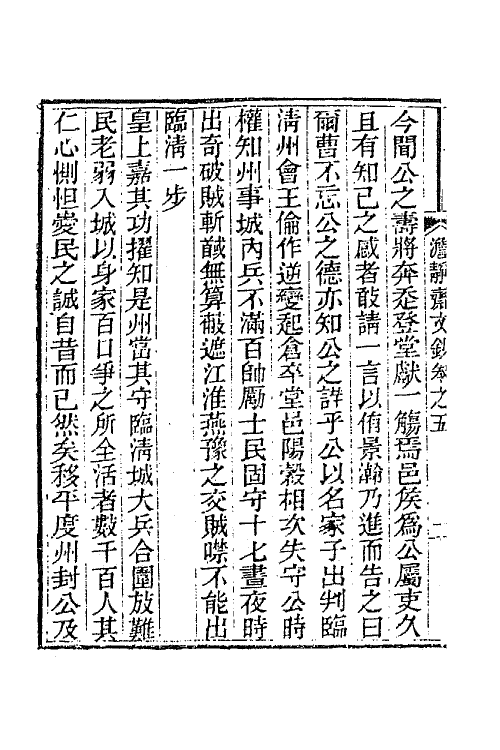 澹靜齋文鈔卷之五 二
今聞公之壽將奔走登堂獻一觴焉邑侯爲公屬吏久
且有知己之感者敢請一言以侑景瀚乃進而告之曰
爾曹不忘公之德亦知公之詳乎公以名家子出判臨
淸州會王倫作逆變起倉卒堂邑陽穀相次失守公時
權知州事城內兵不滿百帥勵士民固守十七晝夜時
出奇破賊斬馘無算蔽遮江淮燕豫之交賊噤不能出
臨淸一步
皇上嘉其功擢知是州當其守臨淸城大兵合圍放難
民老弱入城以身家百口爭之所全活者數千百人其
仁心惻怛愛民之誠自昔而已然矣移平度州封公及